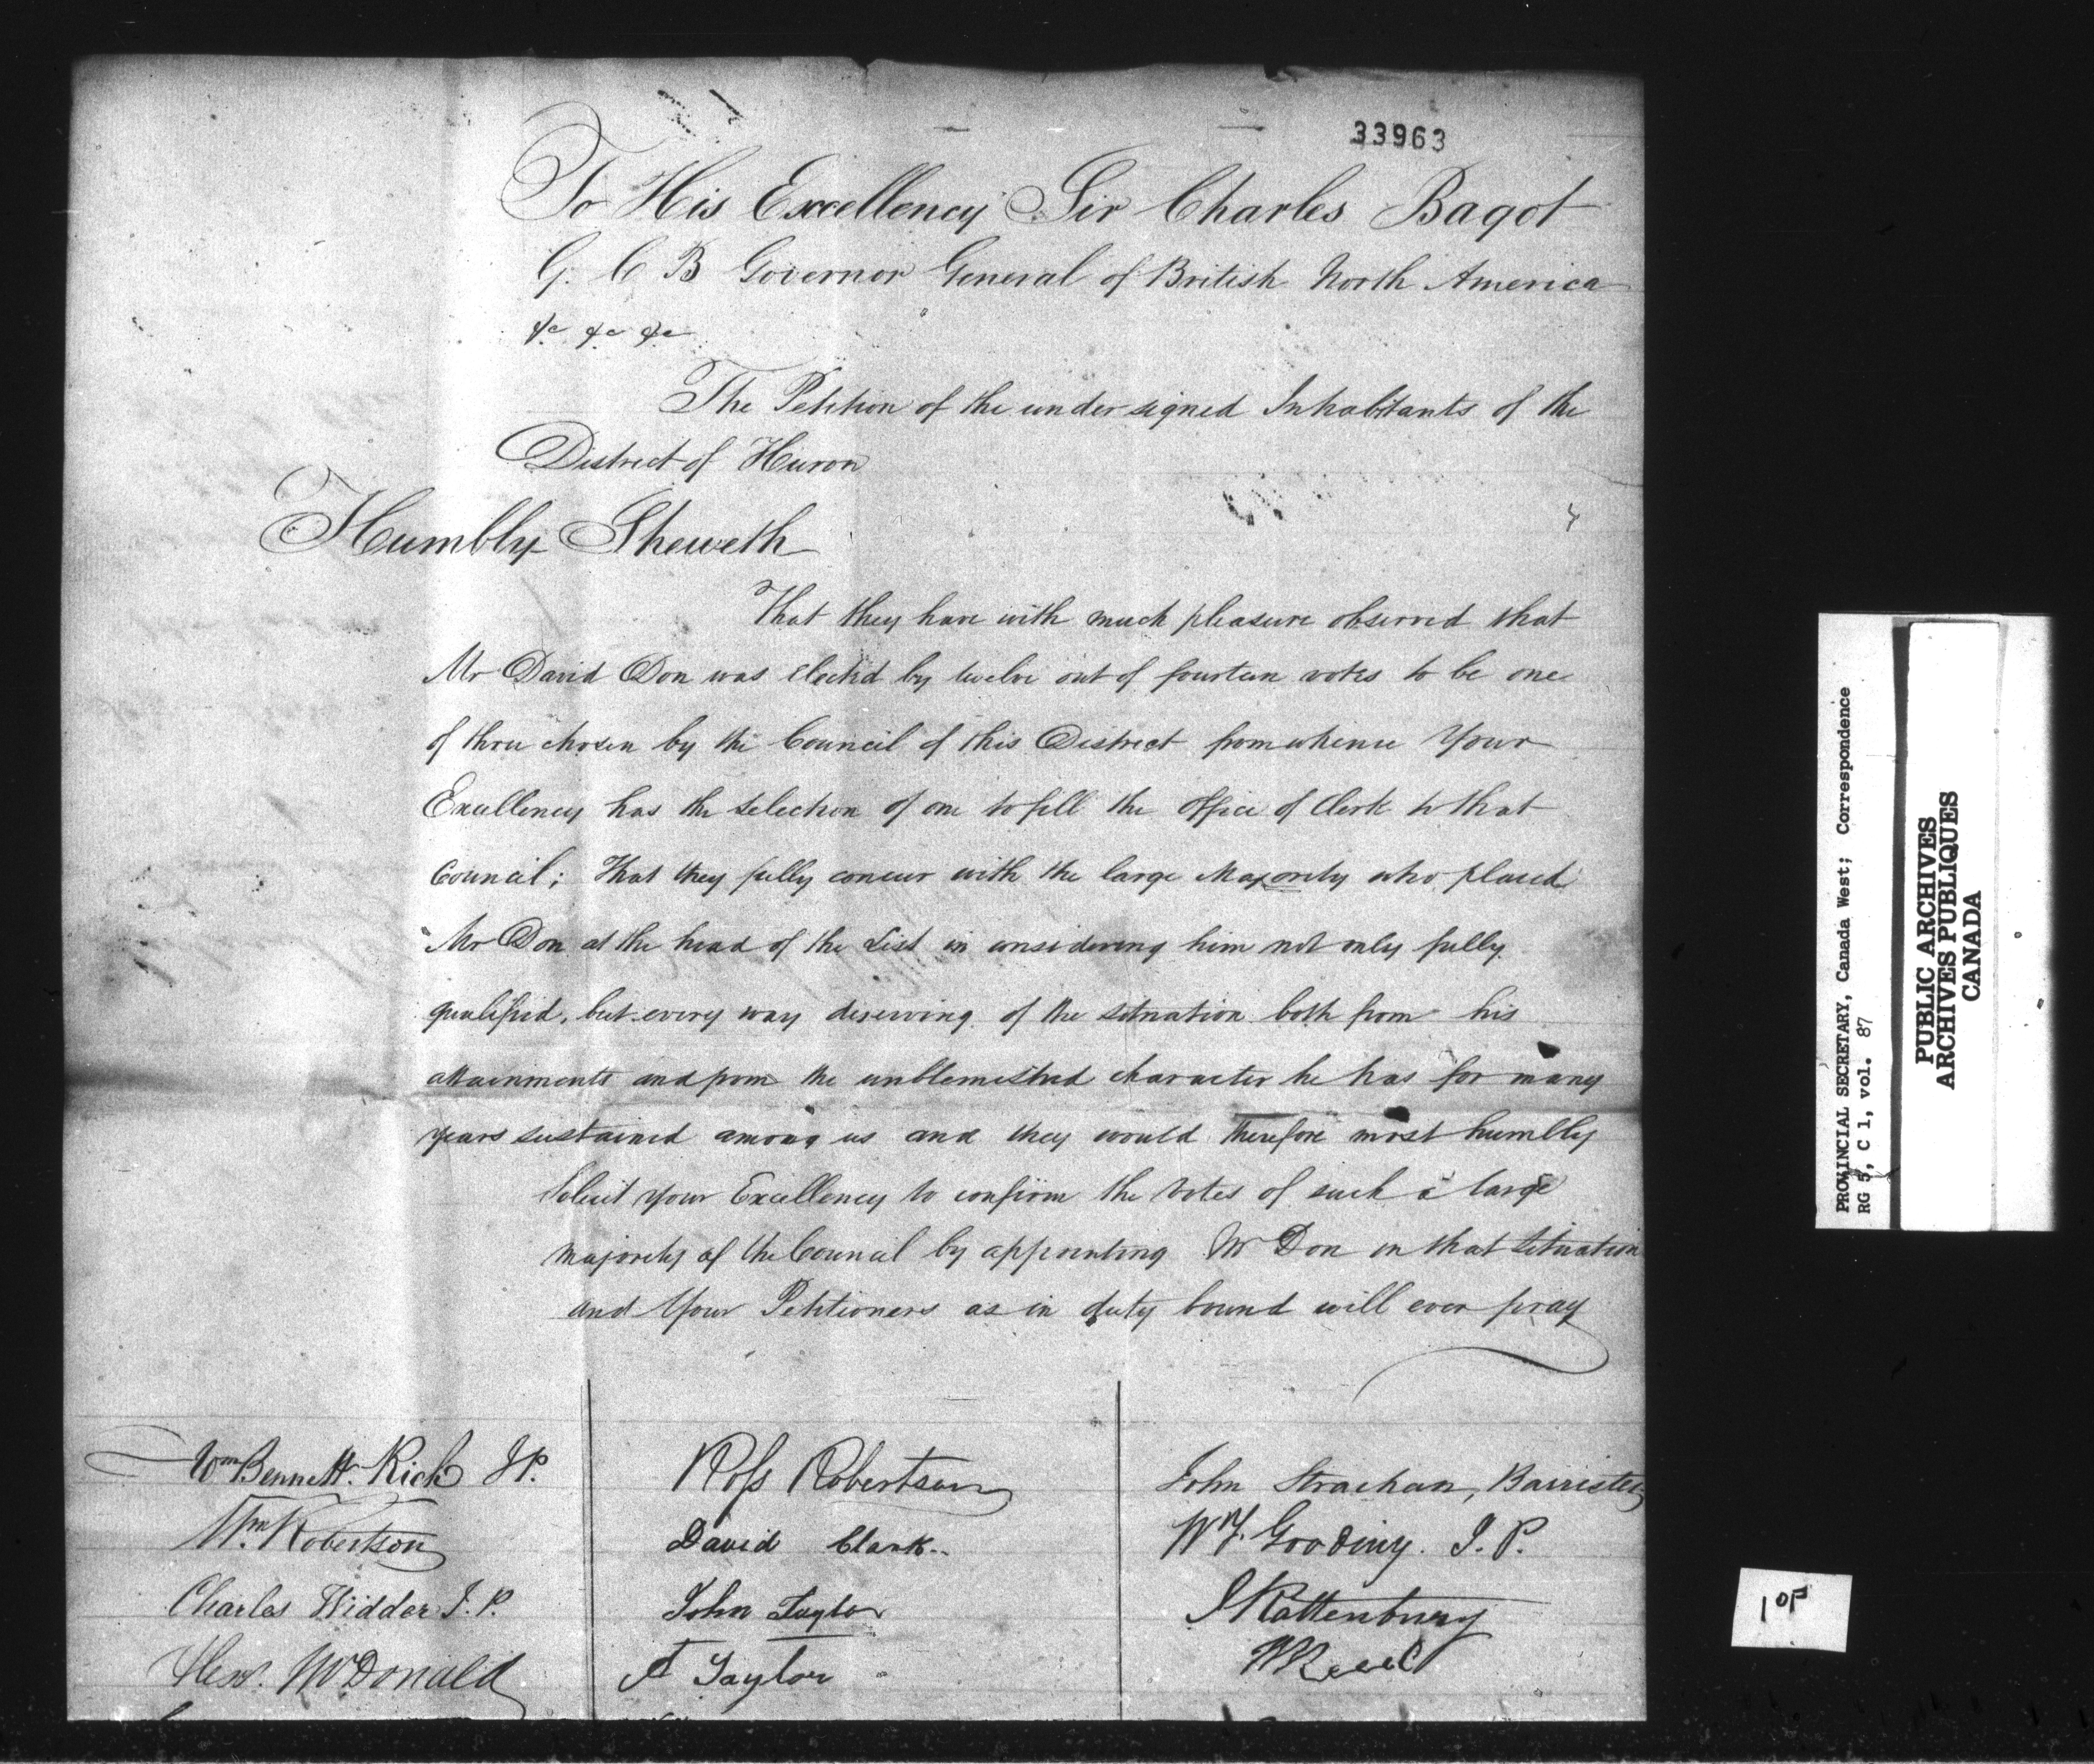 33963
To His Excellency Sir Charles Bagot
G. C B Governor General of British North America
&c &c &c
The Petition of the undersigned Inhabitants of the
District of Huron
Humbly Sheweth
That they have with much pleasure observed that
Mr David Don was elected by twelve out of fourteen votes to be one
of three chosen by the Council of this District from whence Your
Excellency has the selection of one to fill the office of Clerk to that
Council; That they fully concur with the large Majority who placed
Mr Don at the head of the List in considering him not only fully
qualified, but every way deserving of the situation both from his
attainments and from the unblemished character he has for many
years sustained among us and they would therefore most humbly
Solicit your Excellency to confirm the votes of such a large
majority of the Council by appointing Mr Don in that situation
and Your Petitioners as in duty bound will ever pray
Wm Bennett Rich J.P.
Wm Robertson
Charles Widder J.P.
Alexr. McDonald
Ross Robertson
David Clark
John Taylor
A Taylor
John Strachan, Barrister
Wm F. Gooding. J.P.
J Rattenbury
W Reed
PROVINCIAL SECRETARY, Canada West; Correspondence
RG 5, C 1, vol. 87
PUBLIC ARCHIVES
ARCHIVES PUBLIQUES
CANADA